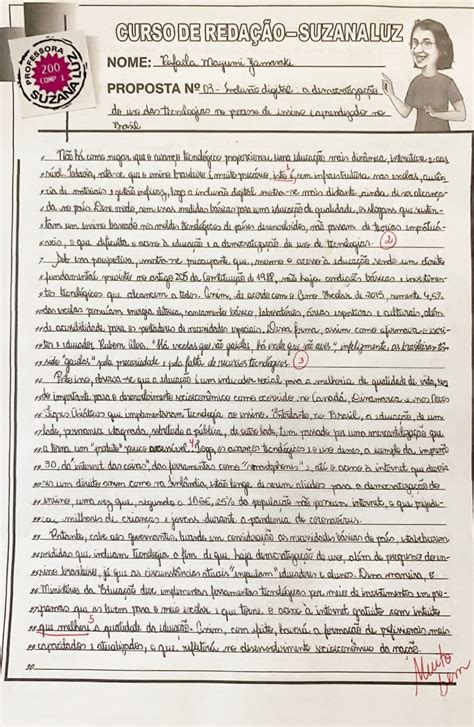 CURSO DE REDAÇÃO-SUZANALUZ
PROFESSORA
200
COMP 1
SUZANA LUZ
NOME: Rafaela Mayumi Yamazaki
PROPOSTA Nº 03 - Inclusão digital: a democratização
do uso das tecnologias no processo de ensino e aprendizado no
Brasil
Não há como negar que o avanço tecnológico proporcionou uma educação mais dinâmica, interativa e aces
sível. Todavia, nota-se que o ensino brasileiro é muito precário, isto é, sem infraestrutura nas escolas, ausên
cia de materiais e gestão ineficaz, logo a inclusão digital mostra-se mais distante ainda de ser alcança
da no país. Desse modo, sem essas medidas básicas para uma educação de qualidade, os slogans que susten-
tam um ensino baseado nos moldes tecnológicos de países desenvolvidos, não passam de teorias impraticá
veis, o que dificulta o acesso à educação e a democratização do uso de tecnologias. 2
Sob essa perspectiva, mostra-se preocupante que, mesmo o acesso à educação sendo um direito
fundamental previsto no artigo 205 da Constituição de 1988, não haja condições básicas e investimen
tos tecnológicos que alcancem a todos. Assim, de acordo com o Censo Escolar de 2015, somente 4,5%
das escolas possuíam energia elétrica, saneamento básico, laboratórios, áreas esportivas e culturais, além
de acessibilidade para os portadores de necessidades especiais. Dessa forma, assim como afirmava o escri
tor e educador Rubem Alves: "Há escolas que são gaiolas, há escolas que são asas", infelizmente, os brasileiros têm
sido "gaiolas" pela precariedade e pela falta de recursos tecnológicos. 3
Posto isso, observa-se que a educação é um indicador social para a melhoria da qualidade de vida, sen
do importante para o desenvolvimento socioeconômico como ocorrido no Canadá, Dinamarca e nos
Tigres Asiáticos que implementaram tecnologia ao ensino. Entretanto, no Brasil, a educação, de um
lado, permanece estagnada, sobretudo a pública, de outro lado, tem passado por uma mercantilização que
a torna um "produto" pouco acessível. 4 Logo, os avanços tecnológicos e o uso desses, a exemplo da impressora
3D, da internet das coisas, das ferramentas como "smartphones", até o acesso à internet que deveria
ser um direito assim como na Finlândia, está longe de serem aliados para a democratização do
ensino, uma vez que, segundo o IBGE, 25% da população não possuem internet, o que prejudi
cou milhares de crianças e jovens durante a pandemia do coronavírus.
Portanto, cabe aos governantes, levando em consideração as necessidades básicas do país, estabelecerem
medidas que incluam tecnologia a fim de que haja democratização do uso, além do progresso do en-
sino brasileiro, já que as circunstâncias atuais "impelem" educadores e alunos. Dessa maneira, o
Ministério da Educação deve implementar ferramentas tecnológicas por meio de investimentos em pro
gramas que as levem para o meio escolar e que torne o acesso à internet gratuito com intuito
que melhore 5 a qualidade da educação. Assim, com efeito, haverá a formação de profissionais mais
capacitados e atualizados, o que refletirá no desenvolvimento socioeconômico da nação.
30
Muito
bem